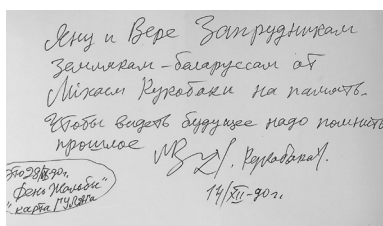 Яну и Вере Запрудникам
землякам-беларуссам от
Міхася Кукобаки на память.
Чтобы видеть будущее надо помнить
прошлое
Кукобака
14/XII-90г.
"карта